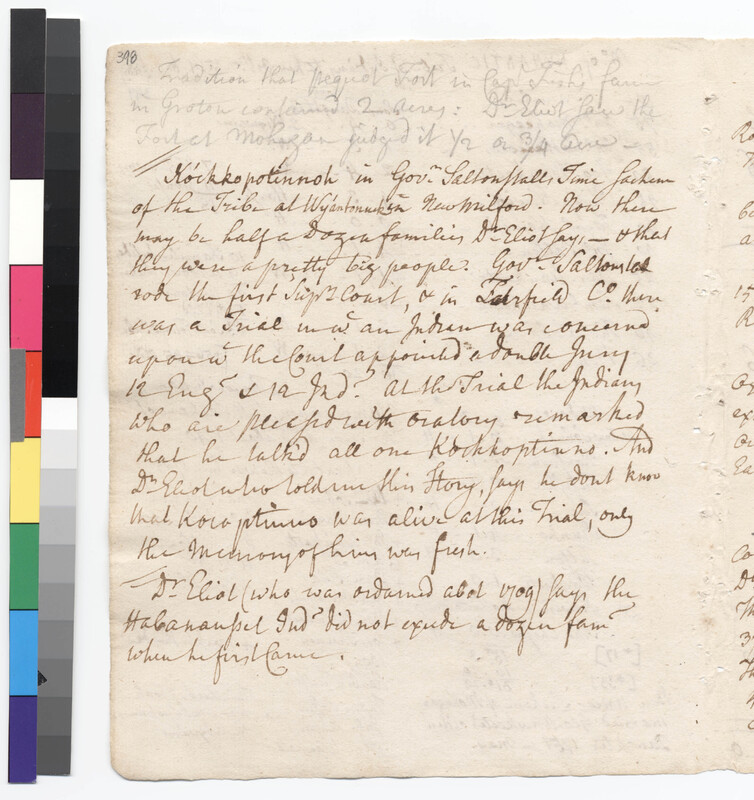 398
Tradition that Pequot Fort in Capt Fishs farm
in Groton contained 2 acres: Dr Eliot saw the
Fort at Mohegan judgd it 1/2 or 3/4 acre —
Kockkopotinnoh in Govr Saltonstalls Time Sachem
of the Tribe at Wyantonuck in New Milford. Now there
may be half a Dozen families Dr Eliot says, — & that
they were a pretty big people. Govr Saltonstal
rode the first Supr Court, & in Fairfield Co. there
was a Trial in wc an Indian was concerned
upon wc the Court appointed a double Jury
12 Engs & 12 Inds. At the Trial the Indians
who are pleased with oratory remarked
that he talk'd all one Kockkoptinno. And
Dr Eliot who told me this Story, says he dont know
that Kocaptinno was alive at this Trial, only
the Memory of him was fresh.
Dr Eliot (who was ordained abot 1709) says the
Inds did not excede a dozen fams
when he first Came.